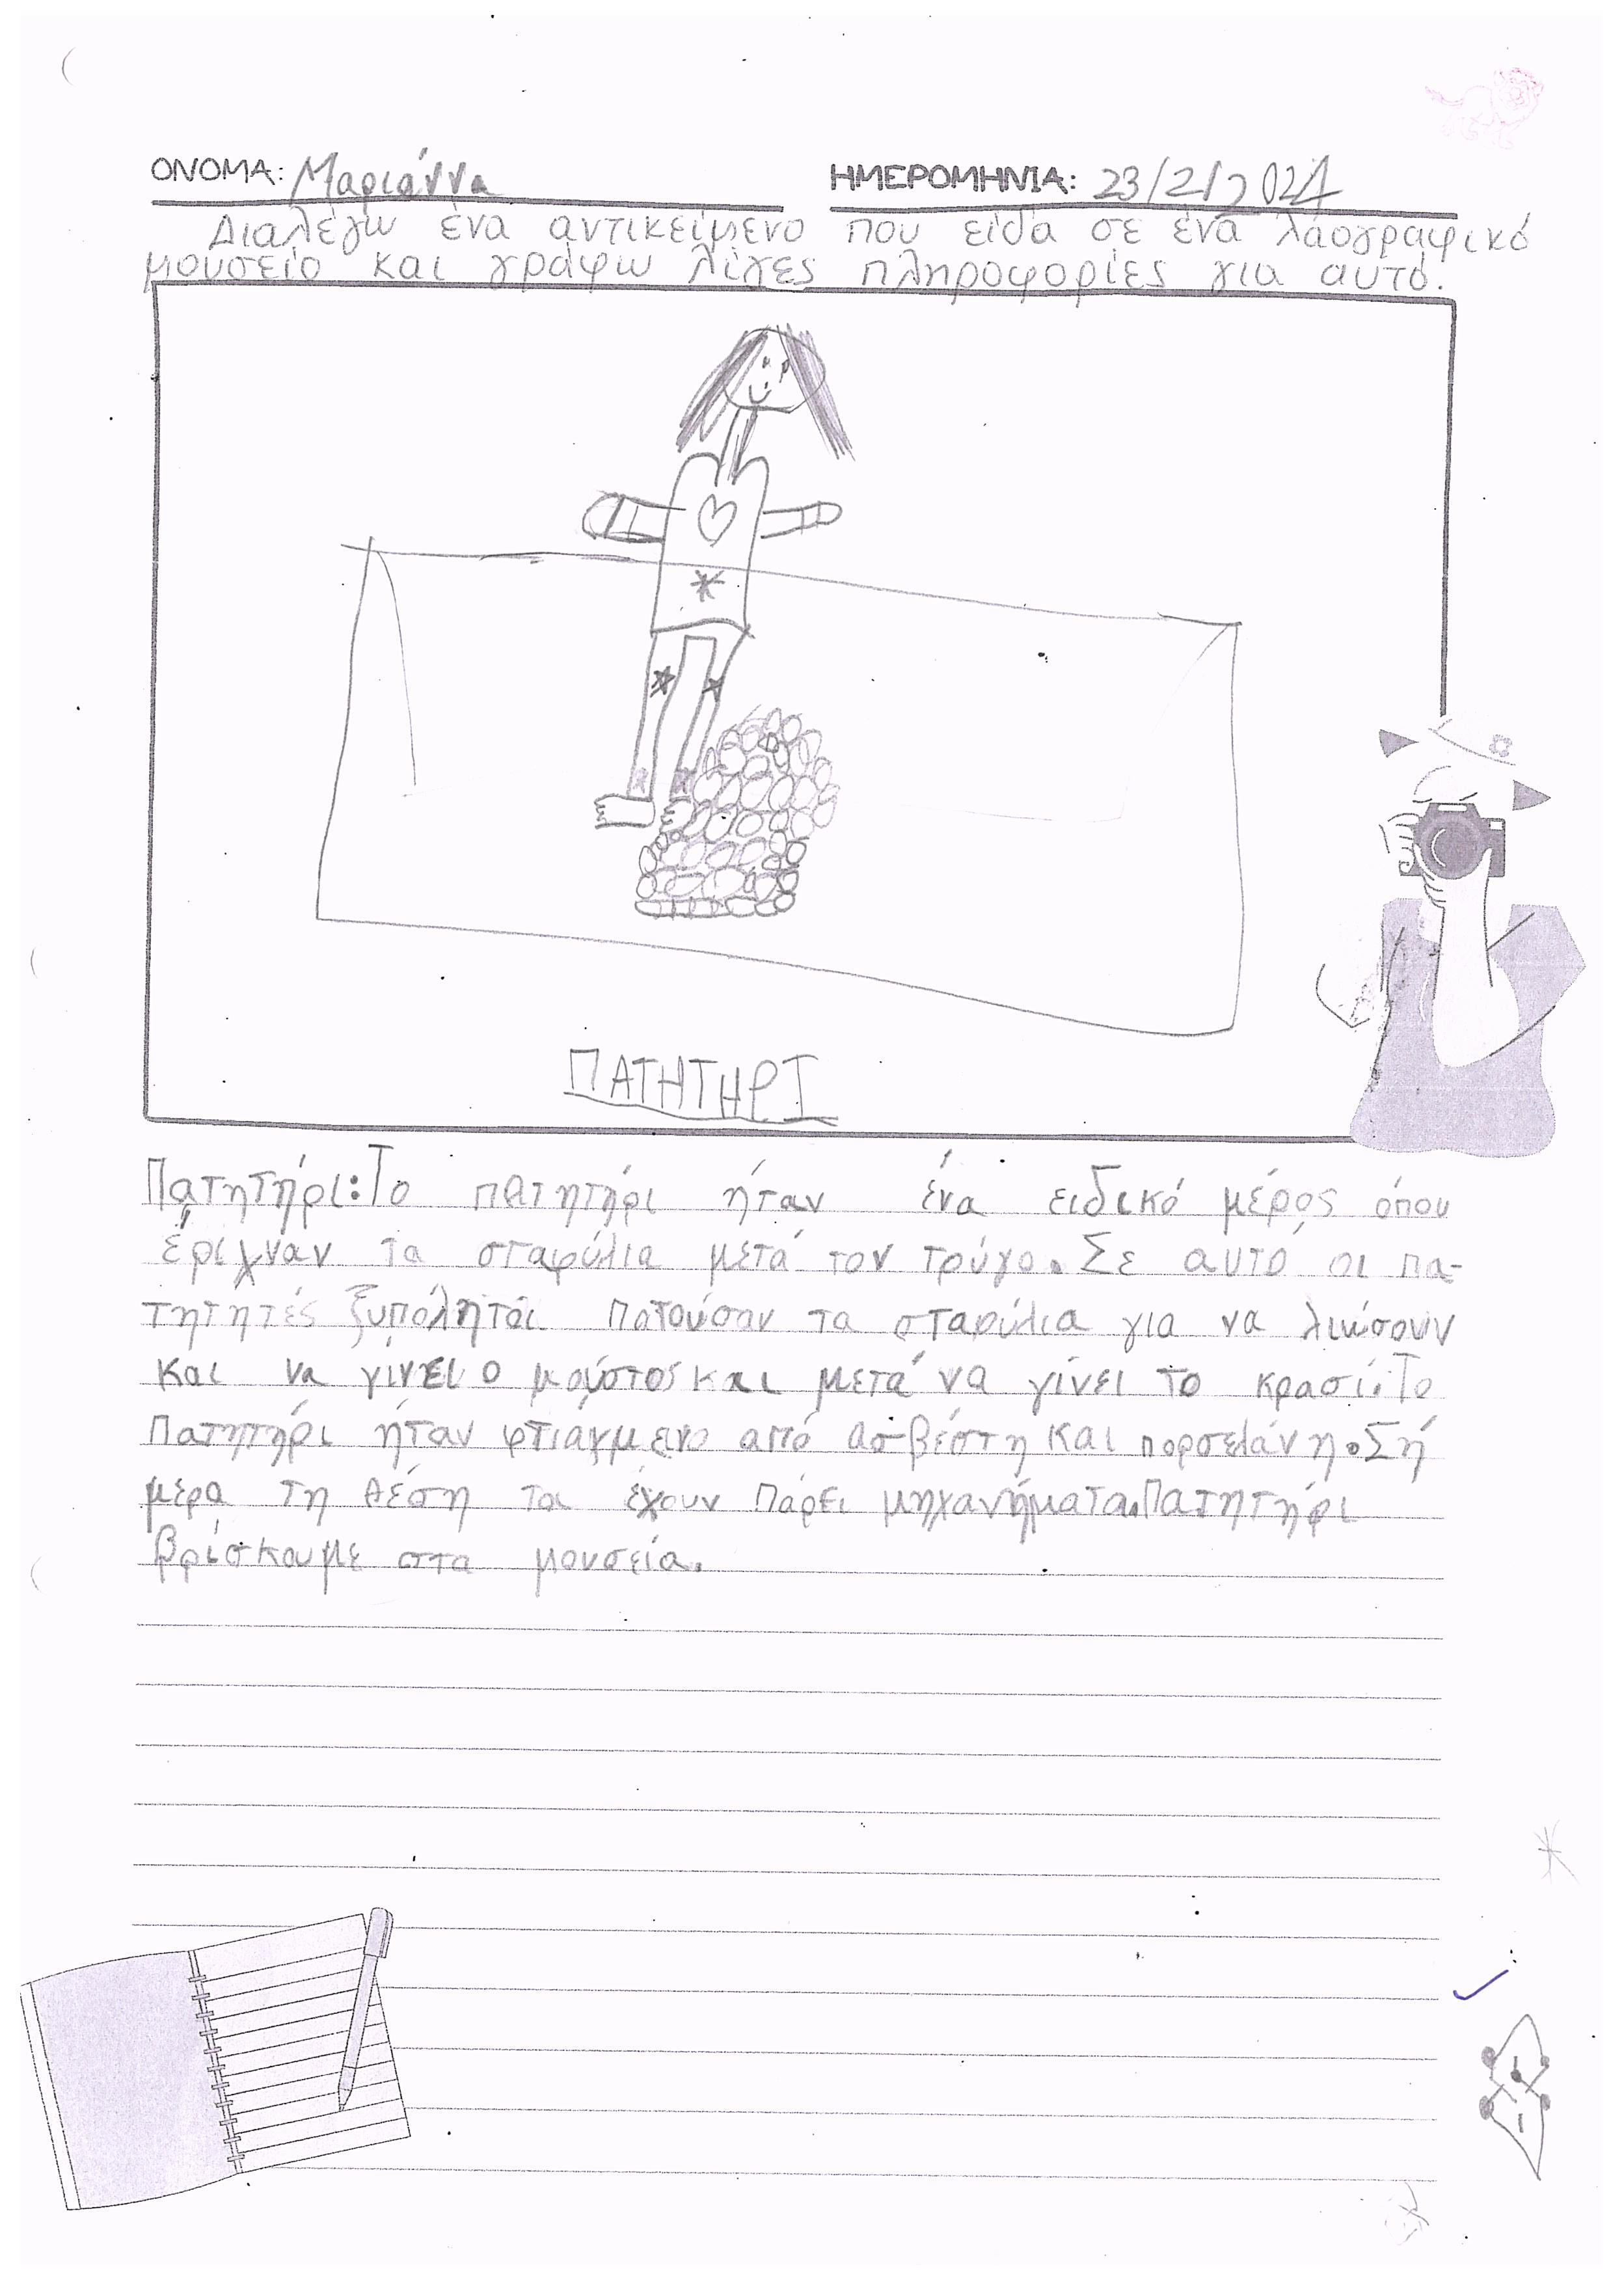 ΟΝΟΜΑ: Μαριάννα ΗΜΕΡΟΜΗΝΙΑ: 23/2/2024
Διαλέγω ένα αντικείμενο που είδα σε ένα λαογραφικό
μουσείο και γράφω λίγες πληροφορίες για αυτό.
ΠΑΤΗΤΗΡΙ
Πατητήρι: Το πατητήρι ήταν ένα ειδικό μέρος όπου
έριχναν τα σταφύλια μετά τον τρύγο. Σε αυτό οι πα-
τητητές ξυπόλητοι πατούσαν τα σταφύλια για να λιώσουν
και να γίνει ο μούστος και μετά να γίνει το κρασί. Το
Πατητήρι ήταν φτιαγμενο από ασβέστη και πορσελάνη. Σή
μερα τη θέση του έχουν Πάρει μηχανήματα. Πατητήρι
βρίσκουμε στα μουσεία.